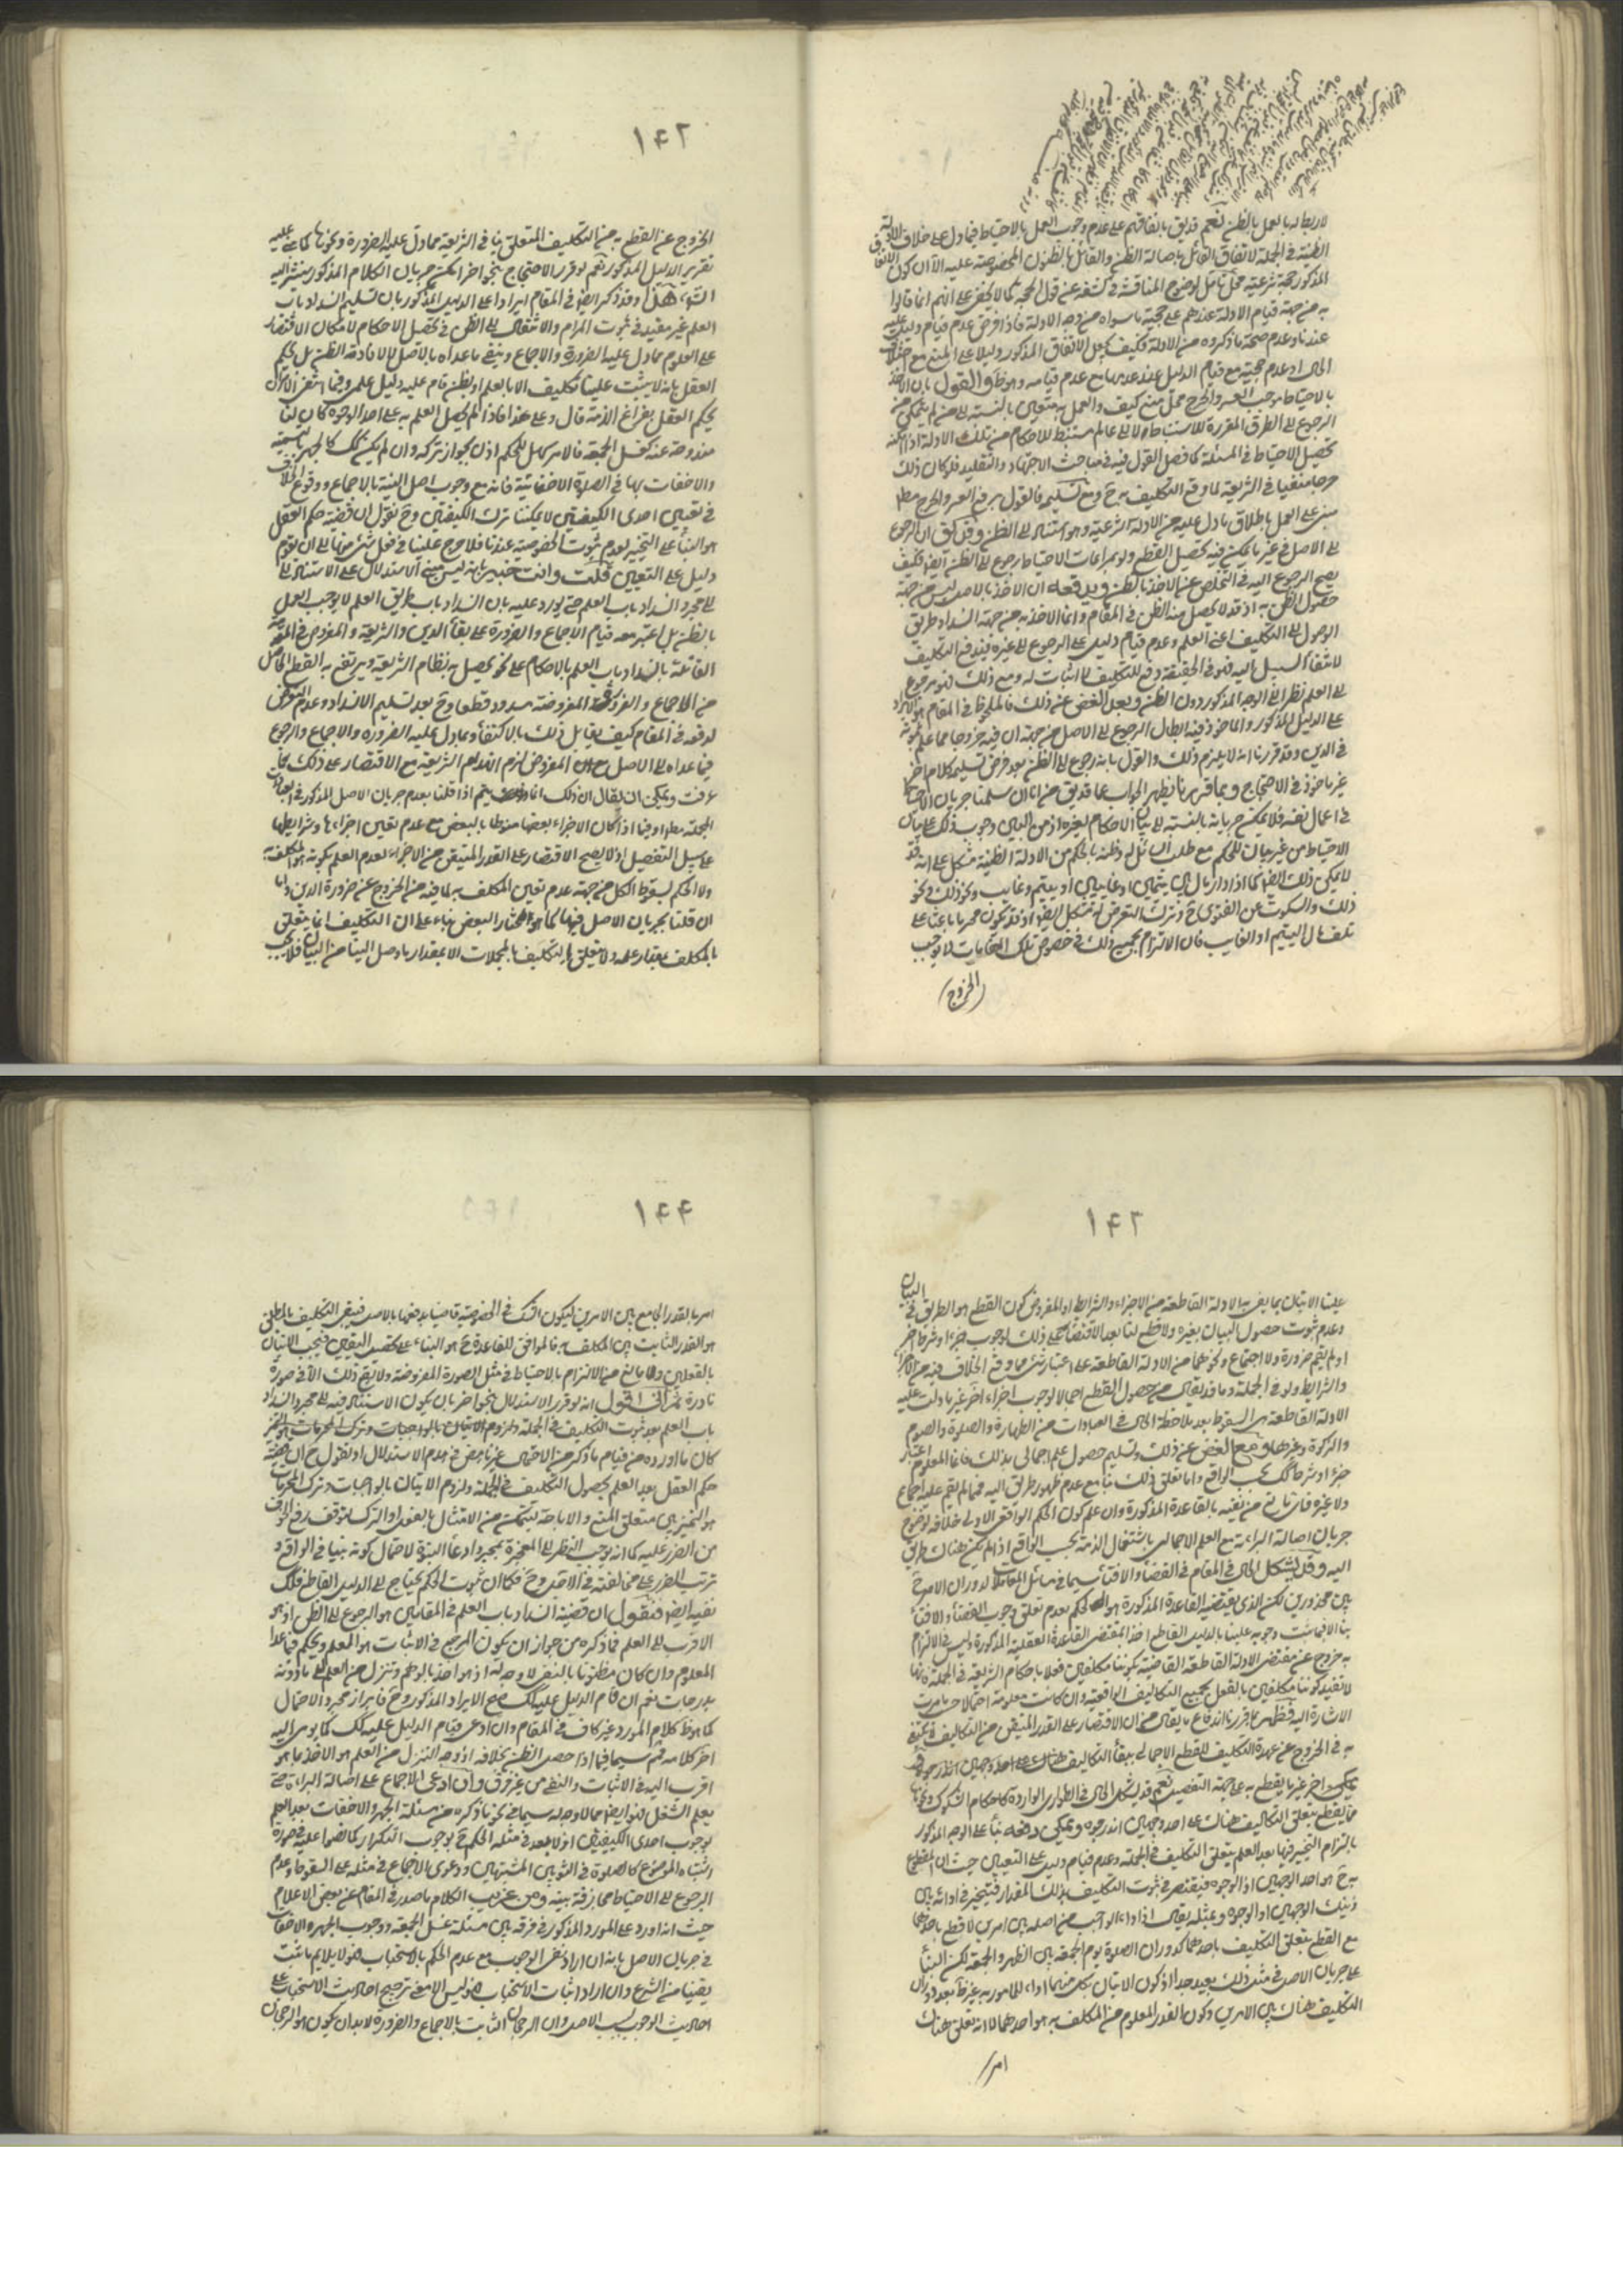 لا ربط له بالعمل بالظن نعم قد يق باتفاقهم على عدم وجوب العمل بالاحتياط فيما دل على خلافه الادلة
الظنية في الجملة لاتفاق القائل باصالة الظن والقائل بالظنون المخصوصة عليه الا ان كون الاتفاق
المذكور حجة شرعية محل تامل لوضوح المناقشة في كشفه عن قول الحجة كما لا يخفى على انهم انما قالوا
به من جهة قيام الادلة عندهم على حجية ما سواه من وجه الادلة فاذا فرض عدم قيام دليل عليه
عندنا وعدم صحة ما ذكروه من الادلة فكيف يجعل الاتفاق المذكور دليلا على المنع مع
بالاحتياط موجب للعسر والحرج محل منع كيف والعمل به متعين بالنسبة الى من لم يتمكن من
الرجوع الى الطرق المقررة للاستنباط ولا الى عالم مستنبط للاحكام من تلك الادلة اذا امكنه
تحصيل الاحتياط في المسئلة كما فصل القول فيه في مباحث الاجتهاد والتقليد فلو كان ذلك
حرجا منفيا في الشريعة لما وقع التكليف به ح ومع تسليمه فالقول برفع العسر والحرج مطلقا
مبنى على العمل باطلاق ما دل عليه من الادلة الشرعية وهو استناد الى الظن
الى الاصل في غير ما يمكن فيه تحصيل القطع ولو بمراعات الاحتياط رجوع الى الظن ايضا فكيف
يصح الرجوع اليه في التخلص عن الاخذ بالظن ويدفعه ان الاخذ بالاصل ليس من جهة
حصول الظن به اذ قد لا يحصل منه الظن في المقام وانما الاخذ به من جهة انسداد طريق
الوصول الى التكليف اعنى العلم وعدم قيام دليل على الرجوع الى غيره فيندفع التكليف
لانتفاء السبيل اليه فهو في الحقيقة دفع للتكليف لا اثبات له ومع ذلك فهو رجوع
الى العلم نظرا الى الوجه المذكور دون الظن وبعد الغض عن ذلك فالملحوظ في المقام هو الايراد
على الدليل المذكور والماخوذ فيه ابطال الرجوع الى الاصل من جهة ان فيه خروجا عما علم ثبوته
في الدين وقد قررنا انه لا يلزم ذلك والقول بانه رجوع الى الظن بعد فرض تسليمه كلام اخر
غير ماخوذ في الاحتجاج وبما قررنا يظهر الجواب عما قد يق من انا ان سلمنا جريان الاحتياط
في اعمال نفسه فلا يمكن جريانه بالنسبة الى بيان الاحكام لغيره اذ من البين وجوب ذلك على
الاحتياط من غير بيان للحكم مع طلب السائل له وظنه بالحكم من الادلة الظنية مشكل على انه قد
لا يمكن ذلك ايضا كما اذا دار مال بين يتيمين او غائبين او يتيم وغايب ونحو ذلك ونحو
ذلك والسكوت عن الفتوى ح وترك التعرض له مشكل ايضا اذ قد يكون محرما باعثا على
تلف مال اليتيم او الغايب فان الالتزام بجميع ذلك في خصوص تلك المقامات لا يوجب
(الخروج)
۱۴۲
الخروج عن القطع به من التكليف المتعلق بنا في الشريعة مما دل عليه الضرورة ونحوها كما عليه
تقرير الدليل المذكور نعم لو قرر الاحتجاج بنحو اخر امكن جريان الكلام المذكور سنشير اليه
انش هذا وقد ذكر ايضا في المقام ايرادا على الدليل المذكور بان تسليم انسداد باب
العلم غير مفيد في ثبوت المرام والانتقال الى الظن في تحصيل الاحكام لامكان الاقتصار
على المعلوم مما دل عليه الضرورة والاجماع وينفى ما عداه بالاصل لا لافادته الظن بل لحكم
العقل بانه لا يثبت علينا تكليف الا بالعلم او بظن قام عليه دليل علمى وفيما انتفى الامران
يحكم العقل بفراغ الذمة قال وعلى هذا فاذا لم يحصل العلم به على احد الوجوه كان لنا
مندوحة عنه كغسل الجمعة فالامر كامل للحكم اذن بجواز تركه وان لم يكن كك كالجهر بالتسمية
والاخفات بها في الصلوة الاخفاتية فانه مع وجوب اصل التسمية بالاجماع ووقوع الخلاف
في تعيين احدى الكيفيتين لا يمكننا ترك الكيفيتين وح نقول ان قضية حكم العقل
هو البناء على التخيير لعدم ثبوت الخصوصية عندنا فلا حرج علينا في فعل شئ منهما الى ان يقوم
دليل على التعيين قلت وانت خبير بانه ليس مبنى الاستدلال على الاستناد الى
الى مجرد انسداد باب العلم حتى يورد عليه بان انسداد باب طريق العلم لا يوجب العمل
بالظن بل اعتبر معه قيام الاجماع والضرورة على بقاء الدين والشريعة والمفروض في المقدمة
القائلة بانسداد باب العلم بالاحكام على نحو يحصل به نظام الشريعة ويرتفع به القطع الحاصل
من الاجماع والضرورة المفروضة مسدود قطعا وح بعد تسليم الانسداد وعدم التعرض
لدفعه في المقام كيف يقابل ذلك بالاكتفاء بما دل عليه الضرورة والاجماع والرجوع
فيما عداه الى الاصل مع ان المفروض لزوم انهدام الشريعة مع الاقتصار على ذلك كما
عرفت ويمكن ان يقال ان ذلك انما يتم اذا قلنا بعدم جريان الاصل المذكور في العبادات
المجملة مطلقا او فيما اذا كان الاجزاء بعضها منوطا بالبعض مع عدم تعين اجزائها وشرايطها
على سبيل التفصيل اذ لا يصح الاقتصار على القدر المتيقن من الاجزاء لعدم العلم بكونه هو المكلف به
ولا الحكم بسقوط الكل من جهة عدم تعين المكلف به لما فيه من الخروج عن ضرورة الدين واما
ان قلنا بجريان الاصل فيها كما هو مختار البعض بناء على ان التكليف انما يتعلق
بالمكلف بمقدار علمه ولا يتعلق التكليف بالمجملات الا بمقدار ما وصل الينا من البيان فلا يجب
۱۴۳
علينا الاتيان بما يفى به الادلة القاطعة من الاجزاء والشرايط والمفروض كون القطع هو الطريق في البيان
وعدم ثبوت حصول البيان بغيره ولا قطع لنا بعد الاقتصار على ذلك بوجوب جزء او شرط اخر
او لم يقم ضرورة ولا اجماع ونحوهما من الادلة القاطعة على اعتبار شئ مما وقع الخلاف فيه من الاجزاء
والشرايط ولو في الجملة وما قد يقال من حصول القطع اجمالا بوجوب اجزاء اخر غير ما دلت عليه
الادلة القاطعة بين السقوط بعد ملاحظة الحال في العبادات من الطهارة والصلوة والصوم
والزكوة وغيرها ومع الغض عن ذلك وتسليم حصول علم اجمالى بذلك فانما المعلوم اعتبار
جزء او شرط كك بحسب الواقع واما تعلق ذلك بنا مع عدم ظهور طريق اليه فمما لم يقم عليه اجماع
ولا غيره فاى مانع من نفيه بالقاعدة المذكورة وان علم كون الحكم الواقعى الاولى خلافه لوضوح
جريان اصالة البرائة مع العلم الاجمالى باشتغال الذمة بحسب الواقع اذا لم يكن هناك طريق
اليه وقد يشكل الحال في المقام في القضاء والافتاء سيما في مسائل المعاملات لدوران الامر ح
بين محذورين لكن الذى يقتضيه القاعدة المذكورة هو الحكم بعدم تعلق وجوب القضاء والافتاء
بنا الا فيما ثبت وجوبه علينا بالدليل القاطع اخذا بمقتضى القاعدة العقلية المذكورة وليس في الالتزام
به خروج عن مقتضى الادلة القاطعة القاضية بكوننا مكلفين فعلا باحكام الشريعة في الجملة فانها
لا تفيد كوننا مكلفين بالفعل بجميع التكاليف الواقعية وان كانت معلومة اجمالا حسبما مرت
الاشارة اليه فظهر بما قررنا اندفاع ما يقال من ان الاقتصار على القدر المتيقن من التكاليف لا يكتفى
به في الخروج عن عهدة التكليف للقطع الاجمالى ببقاء التكاليف هناك على احد وجهين
غير ما يقطع به على جهة التفصيل نعم قد يشكل الحال في الطوارى الواردة كاحكام الشكوك ونحوها
مما يقطع بتعلق التكاليف هناك على احد وجهين او وجوه ويمكن دفعه بناء على الوجه المذكور
بالتزام التخيير فيها بعد العلم بتعلق التكليف في الجملة وعدم قيام دليل على التعيين حيث ان المقطوع
به ح هو احد الوجهين او الوجوه فيقتصر في ثبوت التكليف بذلك المقدار فيتخير في ادائه بين
ذينك الوجهين او الوجوه وبمثله يقال اذا دار الواجب من اصله بين امرين لا قطع باحدهما
مع القطع بتعلق التكليف باحدهما كدوران الصلوة يوم الجمعة بين الظهر والجمعة لكن البناء
على جريان الاصل في مثل ذلك بعيد جدا اذ كون الاتيان بكل منهما اداء للمامور به غير ظاهر بعد دوران
التكليف هناك بين الامرين وكون القدر المعلوم من المكلف به هو احدهما لا انه تعلق هناك
امر/
۱۴۴
امر بالقدر الجامع بين الامرين ليكون الشك في الخصوصية قاضيا بدفعها بالاصل فيبقى التكليف بالمطلق
هو القدر الثابت من المكلف به فالموافق للقاعدة ح هو البناء على تحصيل اليقين فيجب الاتيان
بالفعلين ولا مانع من الالتزام بالاحتياط في مثل الصورة المفروضة ولا يقع ذلك الا في صورة
نادرة ثم انى اقول انه لو قرر الاستدلال بنحو اخر بان يكون الاستناد فيه الى مجرد انسداد
باب العلم بعد ثبوت التكليف في الجملة ولزوم الاتيان بالواجبات وترك المحرمات
كان ما اورده من قيام ما ذكر من الاحتمال غير ناهض في هدم الاستدلال او نقول ح ان قضية
حكم العقل بعد العلم بحصول التكليف في الجملة ولزوم الاتيان بالواجبات وترك المحرمات
هو التمييز بين متعلق المنع والاباحة ليتمكن من الامتثال بالفعل او الترك لتوقف دفع الخوف
من الضرر عليه كما انه يوجب النظر الى المعجزة بمجرد ادعاء النبوة لاحتمال كونه نبيا في الواقع و
ترتب الضرر على مخالفته في الاجل وح فكما ان ثبوت الحكم يحتاج الى الدليل القاطع فكك
نفيه ايضا فنقول ان قضية انسداد باب العلم في المقامين هو الرجوع الى الظن اذ هو
الاقرب الى العلم فما ذكره من جواز ان يكون المرجع في الاثبات هو العلم ويحكم فيما عدا
المعلوم وان كان مظنونا بالنفى لا وجه له اذ هو اخذ بالوهم وتنزل من العلم الى ما دونه
بدرجات نعم ان قام الدليل عليه كك صح الايراد المذكور وح فابراز مجرد الاحتمال
كما هو ظ كلام المورد غير كاف في المقام وان ادعى قيام الدليل عليه كك كما يومى اليه
اخر كلامه فتم سيما فيما اذا حصل الظن بخلافه اذ وجه التنزل من العلم هو الاخذ بما هو
اقرب اليه في الاثبات والنفى من غير فرق وان ادعى الاجماع على اصالة البرائة حتى
يعلم الشغل فهو ايضا مما لا وجه له سيما في نحو ما ذكره من مسئلة الجهر والاخفات بعد العلم
بوجوب احدى الكيفيتين اذ لا يبعد في مثله الحكم ح بوجوب التكرار كما نصوا عليه في صورة
اشتباه الموضوع كالصلوة في الثوبين المشتبهين ودعوى الاجماع في مثله على السقوط وعدم
الرجوع الى الاحتياط مجازفة بينة ومن غريب الكلام ما صدر في المقام عن بعض الاعلام
حيث انه اورد على المورد المذكور في فرقه بين مسئلة غسل الجمعة ووجوب الجهر والاخفات
في جريان الاصل بانه ان اراد نفى الوجوب مع عدم الحكم بالاستحباب فهو لا يلايم ما ثبت
يقينا من الشرع وان اراد اثبات الاستحباب فهو ليس الا معنى ترجيح احاديث الاستحباب على
احاديث الوجوب بسبب الاصل وان الرجحان الثابت بالاجماع والضرورة لا بد ان يكون هو الرجحان